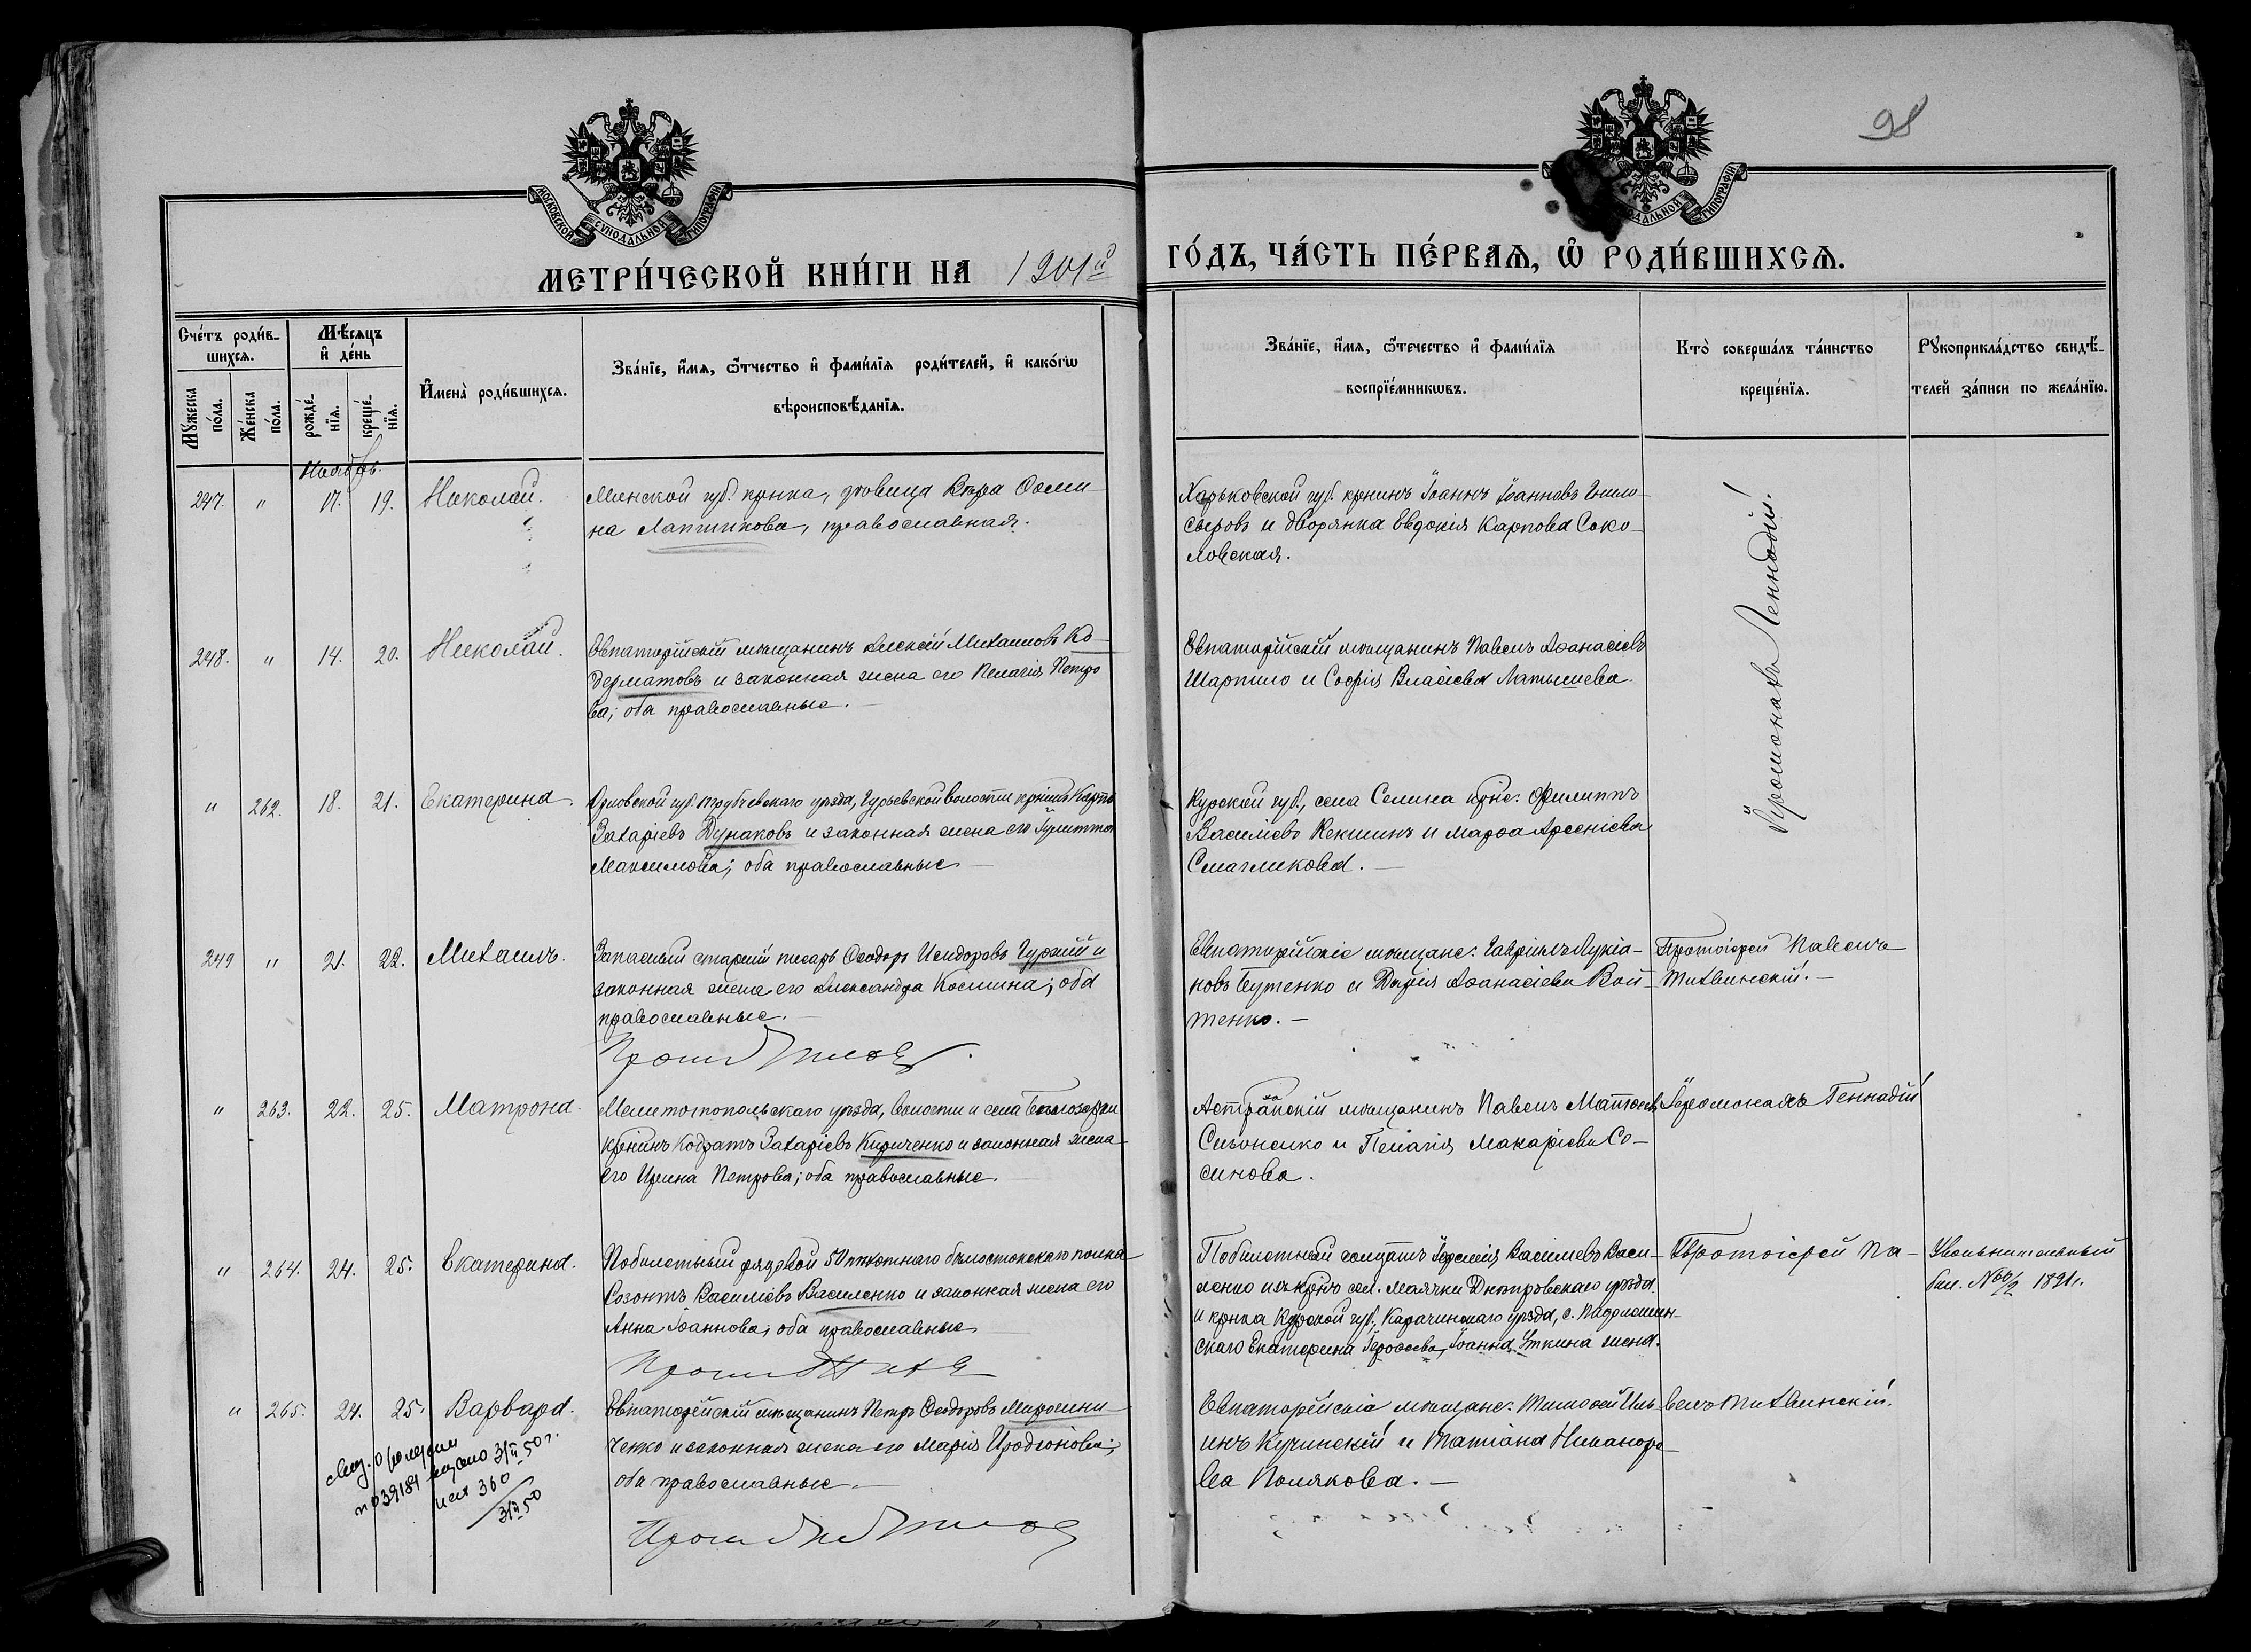 98
МОСКОВСКОЙ СУНОДАЛЬНОЙ ТИПОГРАФІИ
ДАЛЬНОЙ ТИПОГРАФІИ
МЕТРИ́ЧЕСКОЙ КНИ́ГИ НА 1901й ГО́ДЪ, ЧА́СТЬ ПЕ́РВАѦ, Ѡ РОДИ́ВШИХСѦ.
Сче́тъ роди́в-
шихсѧ.
Мѣ́сѧцъ
и де́нь
Мꙋ́жеска по́ла.
Же́нска по́ла.
рожде́-нїѧ.
креще́-нїѧ.
Имена̀ роди́вшихсѧ.
Зва́нїе, и́мѧ, ѻ́тчество и фами́лїѧ роди́телей, и како́гѡ
вѣроисповѣ́данїѧ.
Зва́нїе, и́мѧ, ѻ́течество и фами́лїѧ
воспрїе́мникѡвъ.
Кто̀ соверша́лъ та́инство
креще́нїѧ.
Рꙋкоприкла́дство свидѣ́-
телей за́писи по жела́нїю.
Ноябрь.
247. " 17. 19. Николай.
Минской губ. крнка, вдовица Вѣра Ѳоми-
на Лапшикова, православная.
Харьковской губ. крнинъ Іоаннъ Іоанновъ
и дворянка Евдокія Карпова Соко-
ловская.
Іеромонахъ Геннадій.
248. " 14. 20. Николай.
Евпаторійскій мѣщанинъ Алексій Михаиловъ Ко-
дерматовъ и законная жена его Пелагія Петро
ва; оба православные.
Евпаторійскій мѣщанинъ Павелъ Аѳанасіевъ
Шарпило и Софія Власіева Латышева.
" 262. 18. 21. Екатерина.
Орловской губ. Трубчевскаго уѣзда, Гурьевской волости крнинъ Карпъ
Захаріевъ Дунаковъ и законная жена его Іулитта
Максимова; оба православные.
Курской губ., села Селина крне: Филиппъ
Василіевъ Кекшинъ и Марѳа Арсеніева
Смагликова.
249 " 21. 22. Михаилъ.
Запасный старшій писарь Ѳеодоръ Исидоровъ Гурскій и
законная жена его Александра Космина; оба
православные.
Евпаторійскіе мѣщане: Гавріилъ Лукіа-
новъ Бутенко и Дарія Аѳанасіева Вой-
тенко.
Протоіерей Павелъ
Тихвинскій.
" 263. 22. 25. Матрона.
Мелитопольскаго уѣзда, волости и села Бѣлозерки
крнинъ Кодратъ Захаріевъ Кириченко и законная жена
его Ирина Петрова; оба православные.
Астраханскій мѣщанинъ Павелъ Матѳеевъ
и Пелагія Макаріева Со-
синова.
Іеромонахъ Геннадій
" 264. 24. 25. Екатерина.
Побилетный рядовой 50 пѣхотнаго бѣлостокскаго полка
Созонтъ Василіевъ Василенко и законная жена его
Анна Іоаннова; оба православные.
Побилетный солдатъ Іеремія Василіевъ Васи-
ленко изъ крнъ сел. Маячки Днѣпровскаго уѣзда
и крнка Курской губ., уѣзда, с.
скаго Екатерина Іероѳеева, Іоанна Уткина жена.
Протоіерей Па-
Увольнительный
бил. 1891г.
" 265. 24. 25. Варвара.
Евпаторійскій мѣщанинъ Петръ Ѳеодоровъ Мирошни-
ченко и законная жена его Марія Иродіонова;
оба православные.
Евпаторійскіе мѣщане: Тимоѳей Иль-
инъ Кучинскій и Татіана Никаноро-
ва Полякова.
велъ Тихвинскій.
Свид. о рождении
n 039184 выдано 31/II 50 г.
исх 360
31/II 50